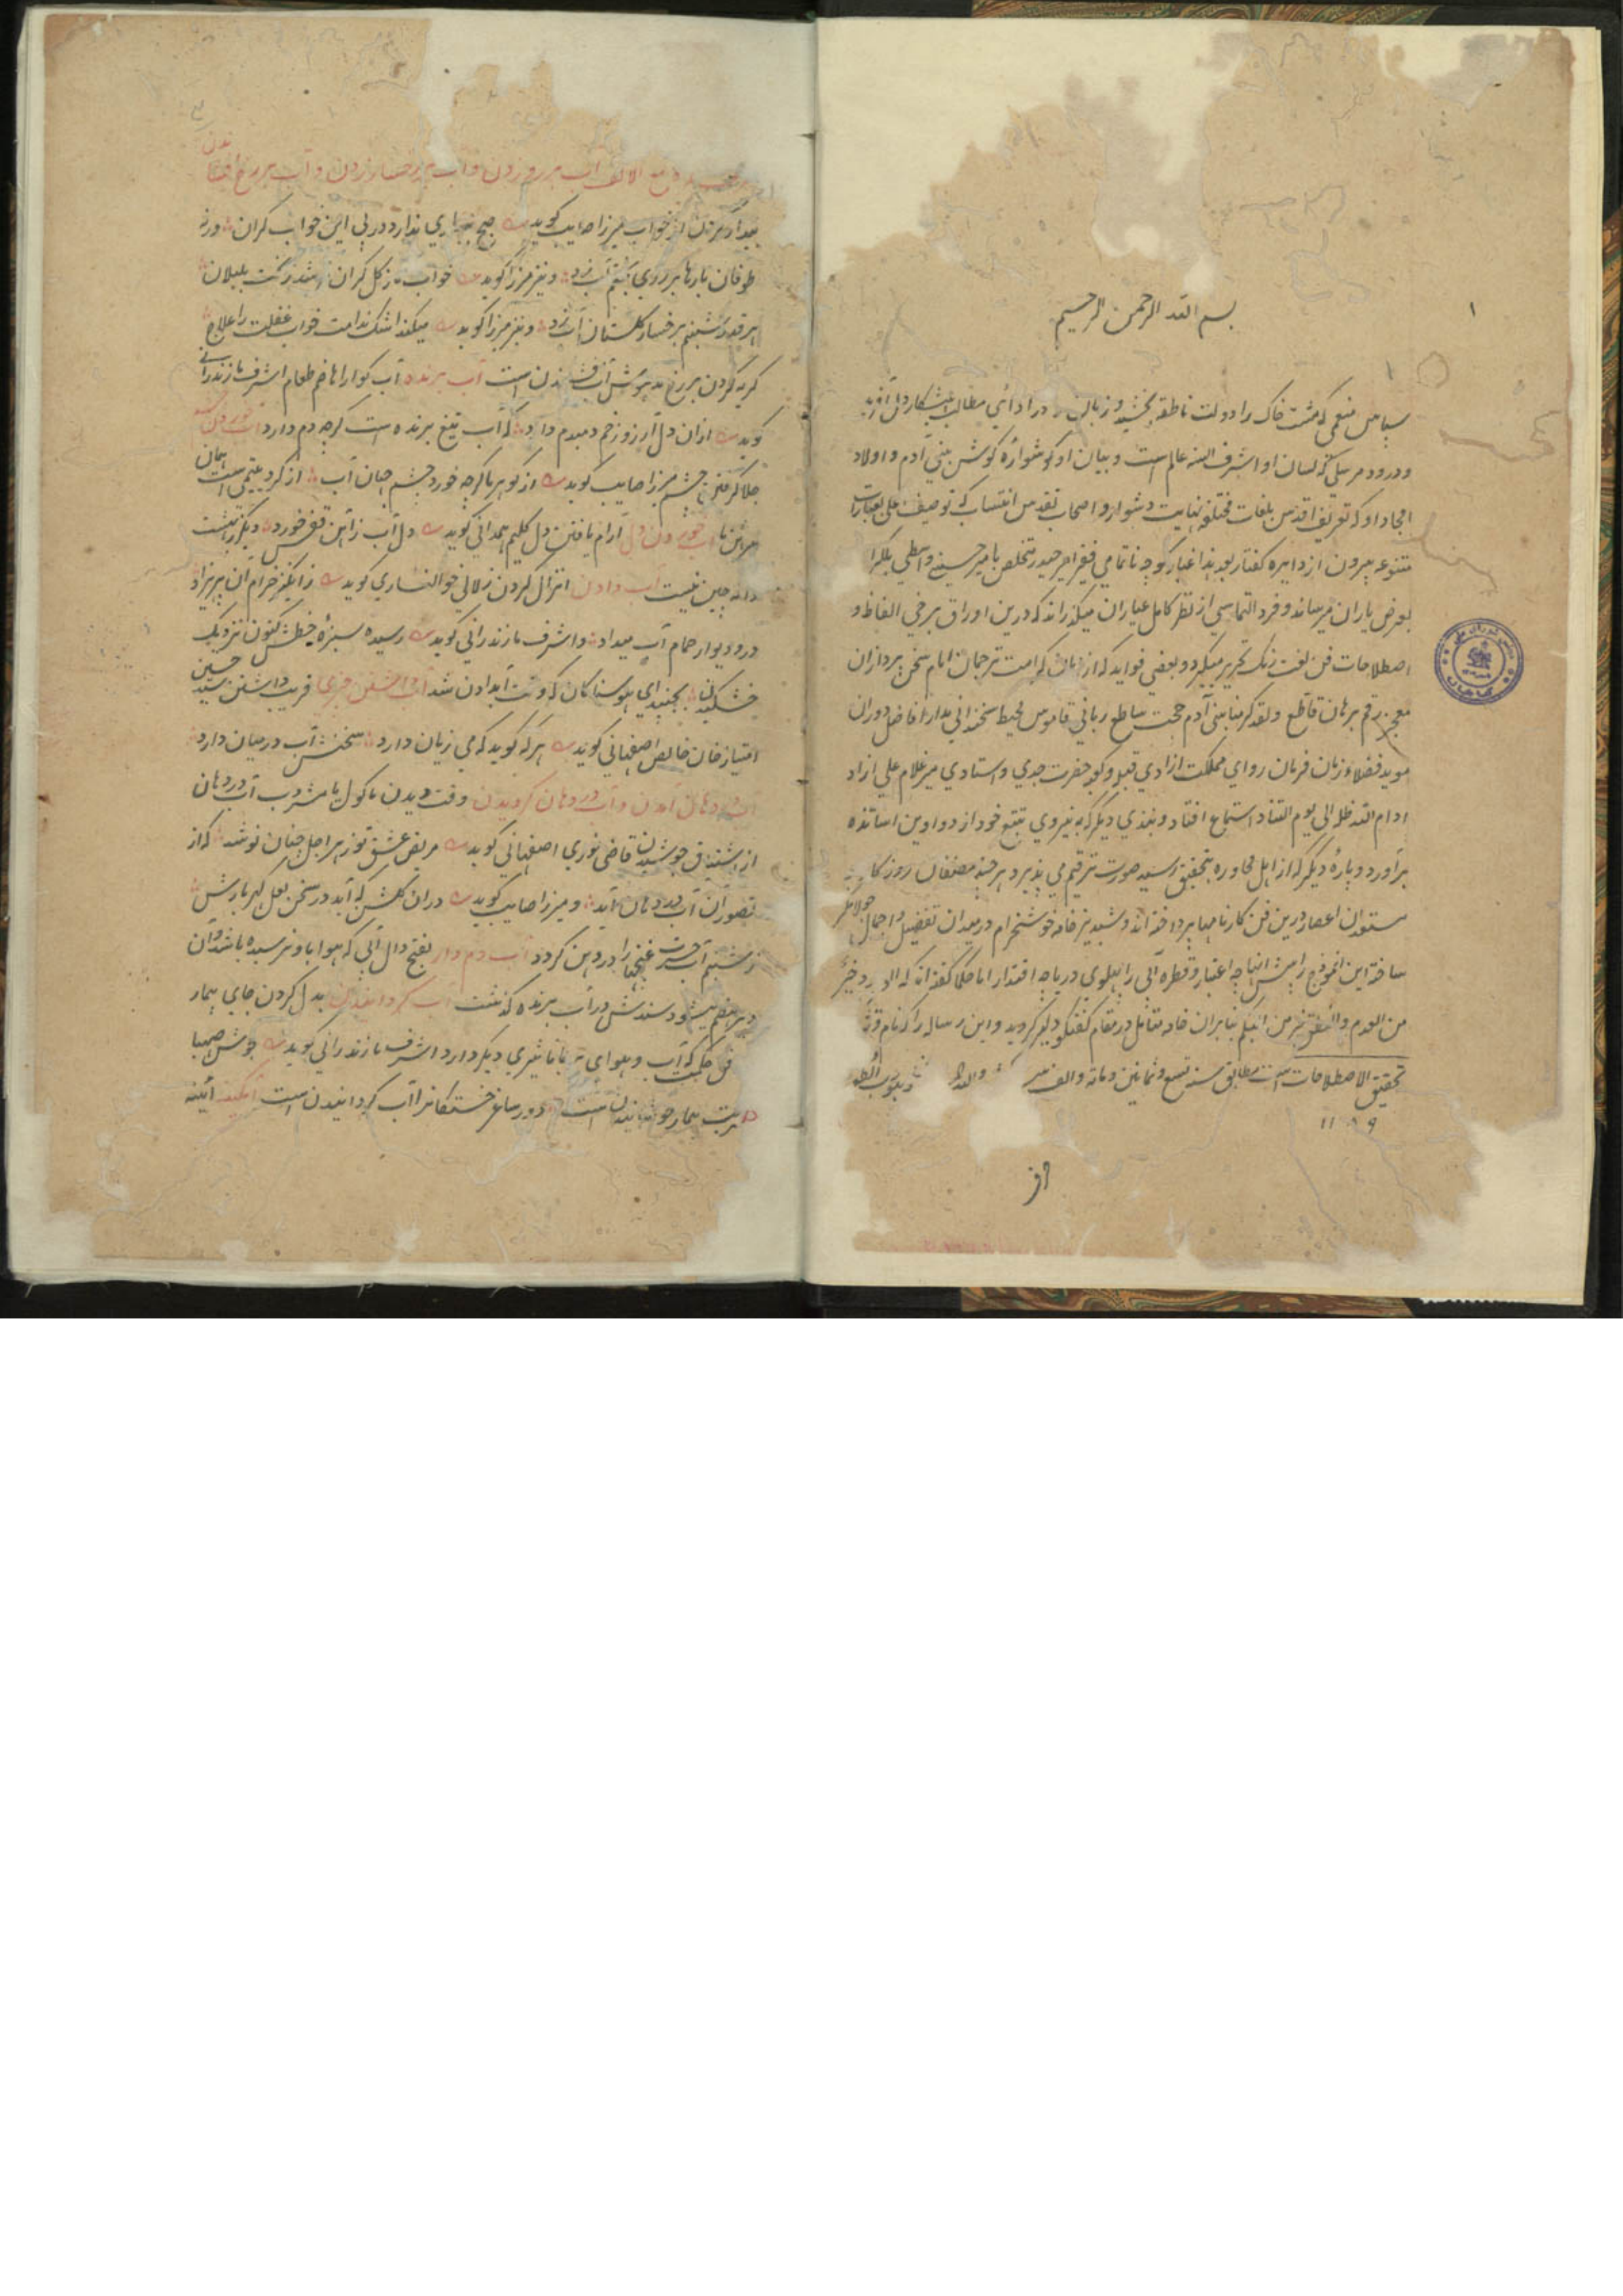 بسم الله الرحمن الرحیم
سپاس منعمی که مشت خاک را دولت ناطقه بخشید و زبان را در ادائی مطالب
و درود مرسلی که لسان او اشرف السنه عالم است و بیان او گوشواره گوش بنی آدم و اولاد
امجاد او که تعریف اقدس بلغات مختلفه نهایت دشوار و اصحاب تقدس انتساب که توصیف علی بعبارات
متنوعه بیرون از دایره گفتار بعد هذا غبار کوچه ناتمامی فقیر امیر حیدر متخلص بامیر حسینی واسطی بلگرامی
بعرض یاران میرساند و فرد التماسی از نظر کامل عیاران میگذراند که درین اوراق برخی الفاظ و
اصطلاحات فن لغت رنگ تحریر میگیرد و بعضی فواید که از زبان کرامت ترجمان امام سخن پردازان
معجز رقم برهان قاطع و لقد کرمنا بنی آدم حجت ساطع ربانی قاموس محیط سخندانی مدار افاضل دوران
موید فضلاء زمان فرمان روای مملکت ازادی قبله و کعبه حضرت جدی و استادی میر غلام علی ازاد
ادام الله ظله الی یوم التناد استماع افتاد و نبذی دیگر که به نیروی تتبع خود از دواوین اساتذه
برآورد و پاره دیگر که از اهل محاوره بتحقیق رسید صورت ترقیم می پذیرد هر چند مصنفان روزکار
مستعدان اعصار درین فن کارنامها پرداخته اند و شبدیز خامه خوشخرام در میدان تفصیل و اجمال جولانگر
ساخته این انموذج را پیش انها چه اعتبار و قطره آبی را پهلوی دریا چه اقتدار اما حکما گفته اند که الوجود خیر
من العدم و النطق خیر من البکم بنابران خامه متامل در مقام گفتگو دلیر گردید و این رساله را که نام
تحقیق الاصطلاحات است مطابق سنه تسع و ثمانین و مائه و الف
۱۱۸۹
آب بر رو زدن و آب بر رخسار زدن و آب بر رخ افشاندن
بیدار کردن از خواب میرزا صایب گوید صبح بیداری ندارد در پی این خواب گران ورنه
طوفان بارها بر روی بختم آب زد و نیز میرزا گوید خواب ناز گل گران تر شد ز گلبانگ بلبلان
هر قدر شبنم بر خسار گلستان آب زد و نیز میرزا گوید میکند اشک ندامت خواب غفلت را علاج
گریه کردن بر رخ مدهوش آب افشاندن است آب برنده آب گوارا هاضم طعام اشرف مازندرانی
گوید ازان دل آرزو زخم دمبدم دارد که آب تیغ برنده است گرچه دم دارد آب خوردن چشم
جلا گرفتن چشم میرزا صایب گوید از گوهر ما گرچه خورد چشم جهان آب از گرد یتیمی است همان
آب خوردن دل آرام یافتن دل کلیم همدانی گوید دل آب ز آهن قفس خورد دیگر
دانه چین نیست آب دادن انزال کردن زلالی خوانساری گوید
در و دیوار حمام آب میداد و اشرف مازندرانی گوید رسیده سبزه خطش کنون نزدیک
خشکیدن بجنبید ای هوسناکان که وقت آب دادن شد آب داشتن چیزی فریب داشتن سید حسین
امتیاز خان خالص اصفهانی گوید هر که گوید که می زیان دارد سخنش آب در میان دارد
آب در دهان آمدن و آب در دهان گردیدن وقت دیدن ماکول یا مشروب آب در دهان
از اشتیاق جوشیدن قاضی نوری اصفهانی گوید مریض عشق تو زهر اجل چنان نوشد که از
تصور آن آب در دهان آید و میرزا صایب گوید دران گلشن که آید در سخن لعل گهر بارش
ز شبنم آب حسرت غنچها را در دهن گردد آب دم دار بفتح دال آبی که هوا باو نرسیده باشد و آن
دیر هضم میشود سندش در آب برنده گذشت آب گردانیدن بدل کردن جای بیمار
فن حکمت که آب و هوای هر جا تاثیری دیگر دارد اشرف مازندرانی گوید جوش صهبا
دور ساغر خستگان را آب گردانیدن است آبگینه آئینه